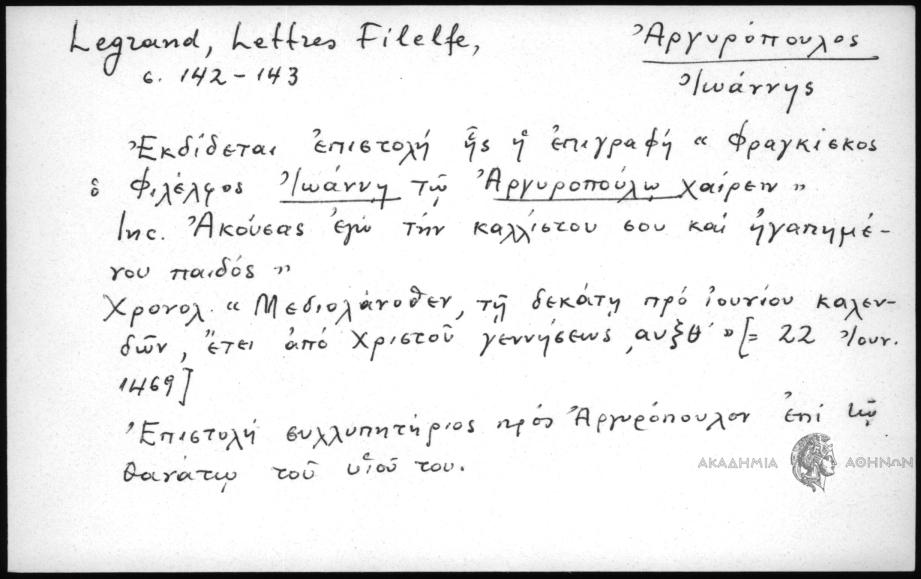 Legrand, Lettres Filelfe,
σ. 142-143
Ἀργυρόπουλος
Ἰωάννης
Ἐκδίδεται ἐπιστολή ἧς ἡ ἐπιγραφή « Φραγκίσκος
ὁ Φιλέλφος Ἰωάννῃ τῷ Ἀργυροπούλῳ χαίρειν »
Inc. Ἀκούσας ἐγώ τήν καλλίστου σου καί ἠγαπημέ-
νου παιδός »
Χρονολ. « Μεδιολάνοθεν, τῇ δεκάτῃ πρό ἰουνίου καλεν-
δῶν, ἔτει ἀπό Χριστοῦ γεννήσεως ͵αυξθ´ » [= 22 Ἰουν.
1469]
Ἐπιστολή συλλυπητήριος πρός Ἀργυρόπουλον ἐπί τῷ
θανάτῳ τοῦ υἱοῦ του.
ΑΚΑΔΗΜΙΑ ΑΘΗΝΩΝ